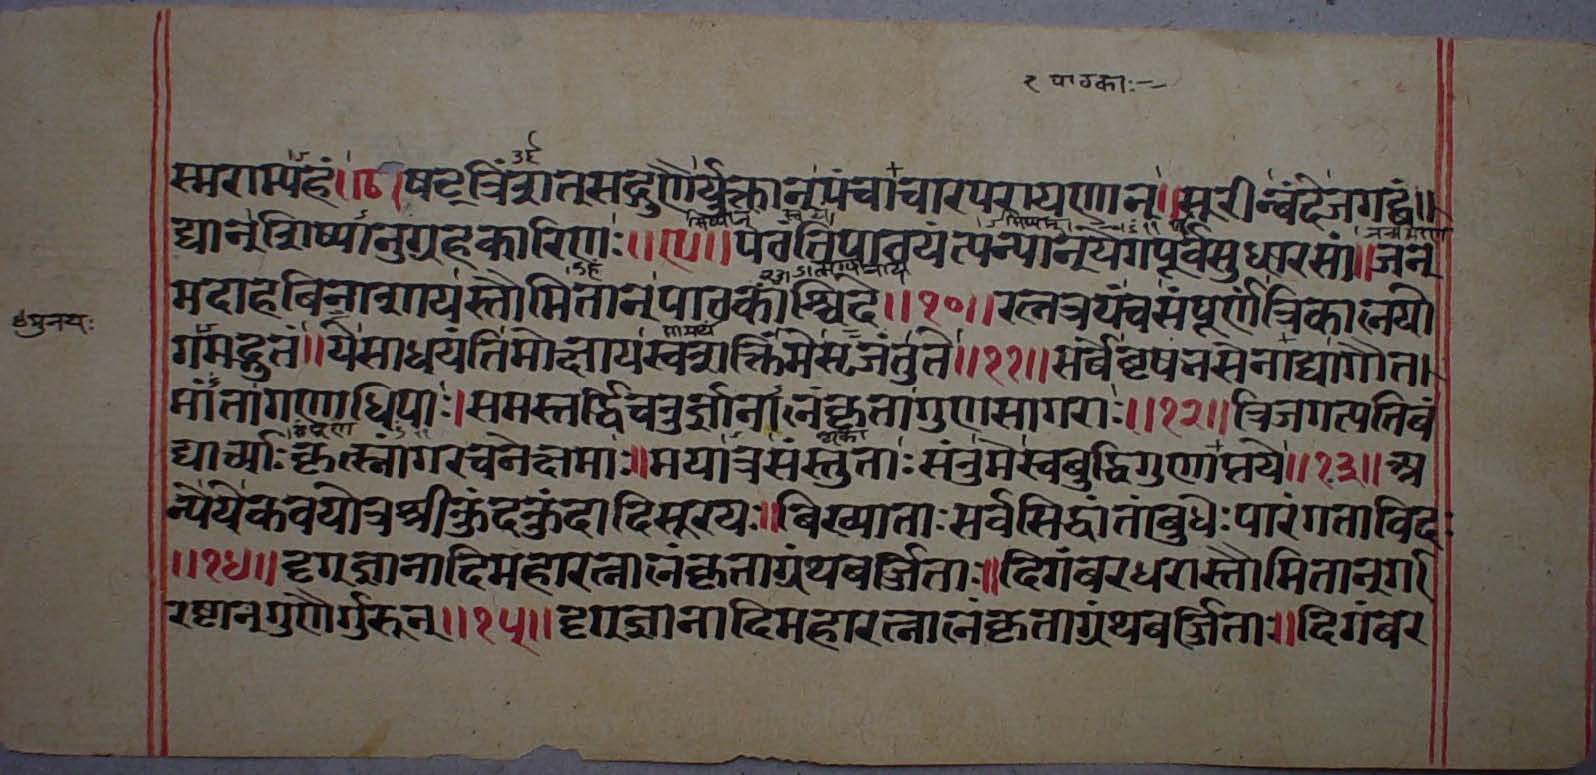 २ पाठकाः-
स्मराम्यहं ॥८॥ षट्त्रिंशत्सद्गुणैर्युक्तान् पंचाचारपरायणान् ॥ सूरीन्वंदे जगद्वं॥
द्यान् शिष्यानुग्रहकारिणः ॥९॥ पठंति पाठयंत्यन्यान् येगपूर्वसुधारसां ॥ जन्
मदाहविनाशाय स्तौमि तान् पाठकांश्चिदे ॥१०॥ रत्नत्रयं च संपूर्णं त्रिकालयो
गमद्भुतं ॥ ये साधयंति मोक्षाय स्वशक्तिं मे सृजंतु ते ॥११॥ सर्वे वृषभसेनाद्या गौत।
मांता गणाधिपाः। समस्तर्द्धिचतुर्ज्ञानालंकृता गुणसागराः ॥१२॥ त्रिजगत्पतिवं
द्यार्च्याः कृत्स्नांगरचने क्षमाः ॥ मयात्र संस्तुताः संतु मे स्वबुद्धिगुणाप्तये ॥१३॥ अ
न्ये ये कवयोत्र श्रीकुंदकुंदादिसूरयः ॥ बिख्याताः सर्वसिद्धांतांबुधेः पारंगता विदः
॥१४॥ दृग्ज्ञानादिमहारत्नालंकृता ग्रंथबर्ज्जिताः ॥ दिगंबरधरा स्तौमि तान् गर्
रष्टान् गुणैर्गुरून् ॥१५॥ दृग्ज्ञानादिमहारत्नालंकृता ग्रंथबर्ज्जिताः ॥ दिगंबर